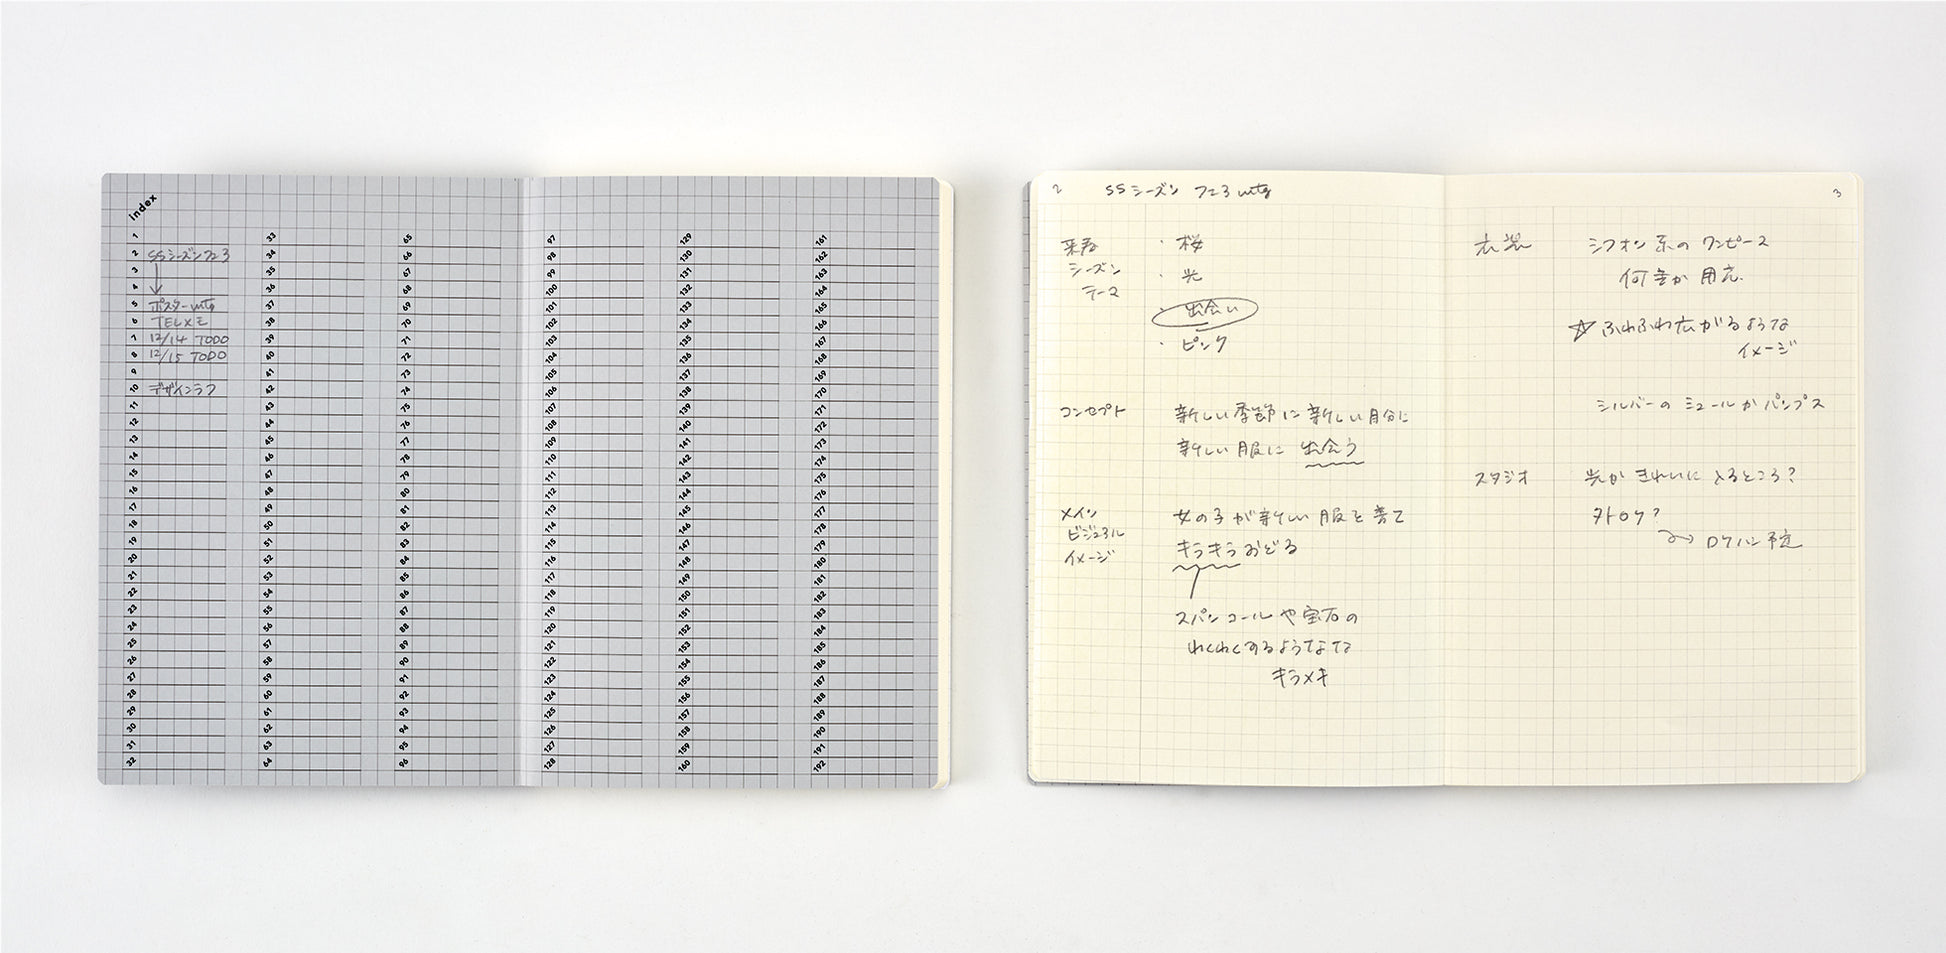 index
1
2 SSシーズンフェア
3
4
5 ポスターmtg
6 TELメモ
7 12/14 TODO
8 12/15 TODO
9
10 デザインラフ
11
12
13
14
15
16
17
18
19
20
21
22
23
24
25
26
27
28
29
30
31
32
33
34
35
36
37
38
39
40
41
42
43
44
45
46
47
48
49
50
51
52
53
54
55
56
57
58
59
60
61
62
63
64
65
66
67
68
69
70
71
72
73
74
75
76
77
78
79
80
81
82
83
84
85
86
87
88
89
90
91
92
93
94
95
96
97
98
99
100
101
102
103
104
105
106
107
108
109
110
111
112
113
114
115
116
117
118
119
120
121
122
123
124
125
126
127
128
129
130
131
132
133
134
135
136
137
138
139
140
141
142
143
144
145
146
147
148
149
150
151
152
153
154
155
156
157
158
159
160
161
162
163
164
165
166
167
168
169
170
171
172
173
174
175
176
177
178
179
180
181
182
183
184
185
186
187
188
189
190
191
192
2
SSシーズン フェア mtg
来春
シーズン
テーマ
・桜
・光
・出会い
・ピンク
コンセプト
新しい季節に新しい自分に
新しい服に 出会う
メイン
ビジュアル
イメージ
女の子が新しい服を着て
キラキラおどる
スパンコールや宝石の
わくわくするような
キラメキ
3
衣裳
シフオン系のワンピース
何色か用意
☆ふわふわ広がるような
イメージ
シルバーのミュールかパンプス
スタジオ
光がきれいにとるところ?
外ロケ?
ロケハン予定